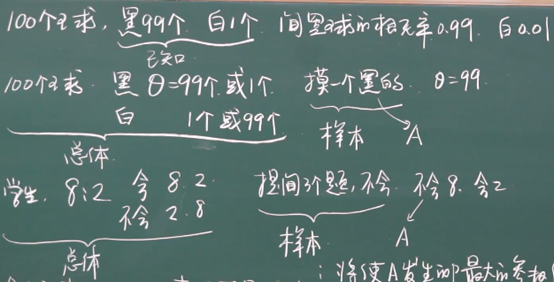 100个球，黑99个 白1个 问黑球的概率0.99. 白0.01
已知
100个球. 黑 θ=99个或1个. 摸一个黑的. θ=99.
白 1个或99个
总体 样本 A
学生. 8:2 会 8.2 提问3个题，不会. 不会8. 会2
不会 2.8
总体 样本 A
将使A发生的 最大的参数